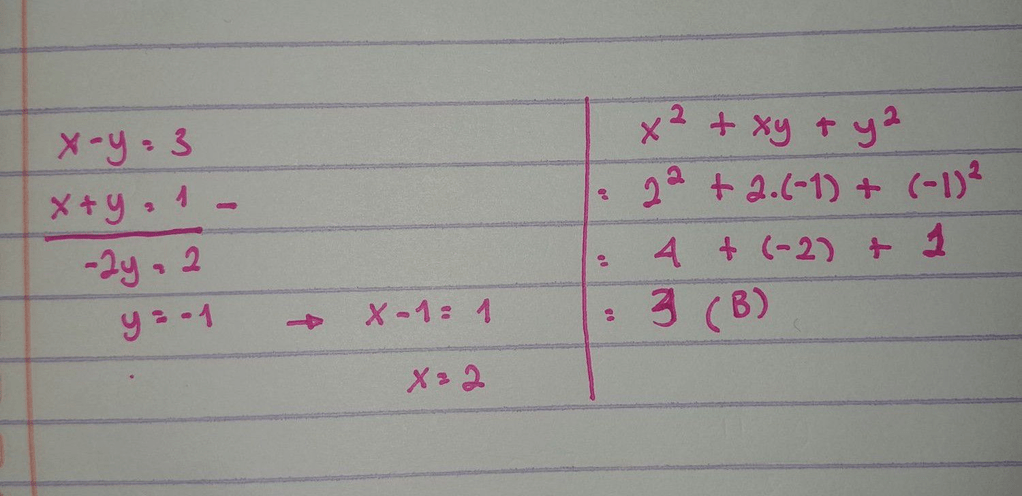 x - y = 3
x + y = 1 -
-2y = 2
y = -1 → x - 1 = 1
x = 2
x² + xy + y²
= 2² + 2.(-1) + (-1)²
= 4 + (-2) + 1
= 3 (B)